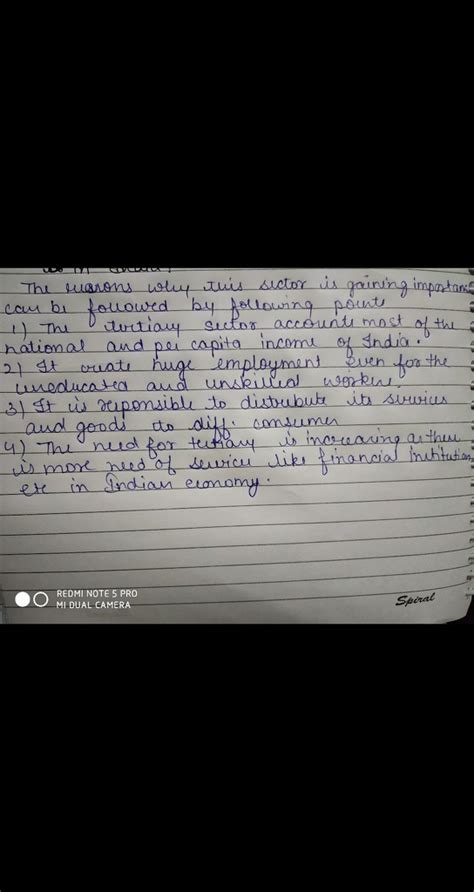 in India.
The reasons why this sector is gaining importance
can be followed by following points
1) The tertiary sector accounts most of the
national and per capita income of India.
2) It create huge employment even for the
uneducated and unskilled workers.
3) It is responsible to distribute its services
and goods to diff. consumer
4) The need for tertiary is increasing as there
is more need of services like financial institution,
etc in Indian economy.
REDMI NOTE 5 PRO
MI DUAL CAMERA
Spiral